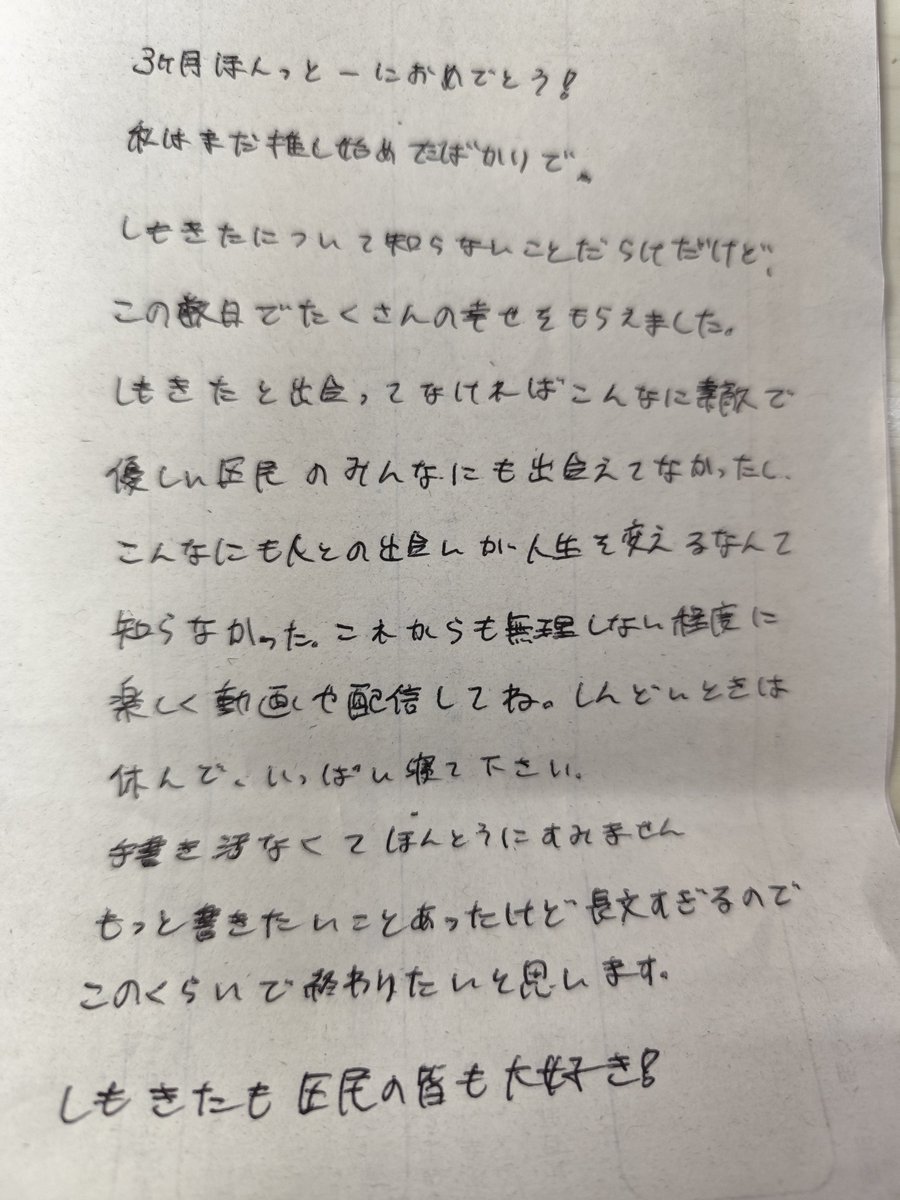 3ヶ月ほんっとーにおめでとう!
私はまだ推し始めたばかりで、
しもきたについて知らないことだらけだけど、
この数日でたくさんの幸せをもらえました。
しもきたと出会ってなければこんなに素敵で
優しい区民のみんなにも出会えてなかったし、
こんなにも人との出会いが人生を変えるなんて
知らなかった。これからも無理しない程度に
楽しく動画や配信してね。しんどいときは
休んで、いっぱい寝て下さい。
手書き汚なくてほんとうにすみません
もっと書きたいことあったけど長文すぎるので
このくらいで終わりたいと思います。
しもきたも区民の皆も大好き!